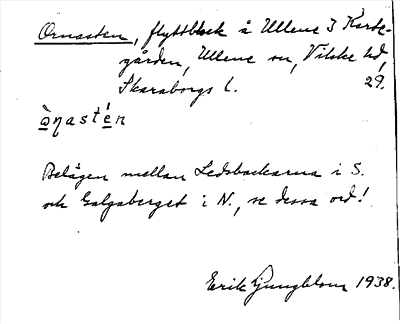 Ornasten, flyttblock å Ullene 3 Karls-
gården, Ullene sn, Vilske hd,
Skaraborgs l. 29.
ò̱ŋasté̱n
Belägen mellan Ledsbackarna i S.
och Galgaberget i N., se dessa ord!
Erik Ljungblom 1938.